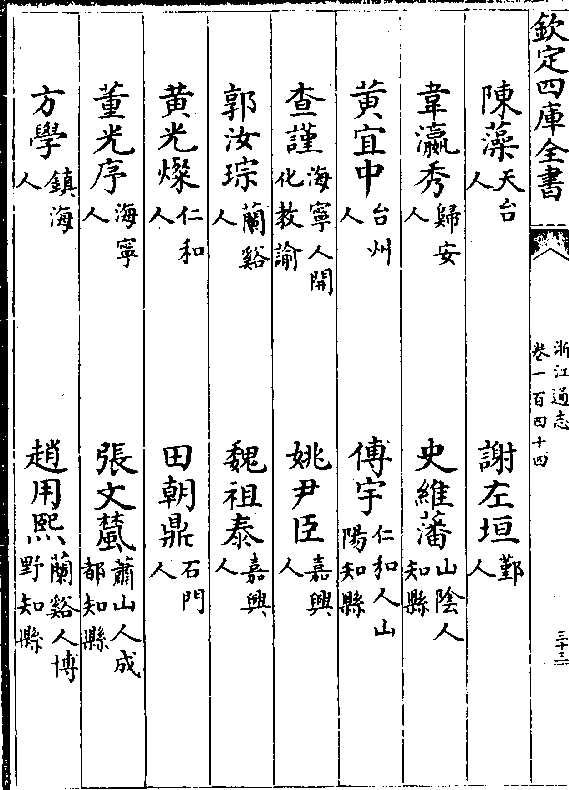 欽定四庫全書
浙江通志
卷一百四十四
三十三
陳藻天台人 謝左垣鄞人
韋瀛秀歸安人 史維藩山陰人知縣
黃宜中台州人 傅宇仁和人山陽知縣
查謹海寧人開化教諭 姚尹臣嘉興人
郭汝琮蘭谿人 魏祖泰嘉興人
黃光燦仁和人 田朝鼎石門人
董光序海寧人 張文蘭蕭山人成都知縣
方學鎮海人 趙用熙蘭谿人博野知縣